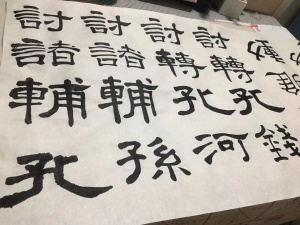 討討討討
諸諸轉轉
輔輔孔孔
孔孫河錢